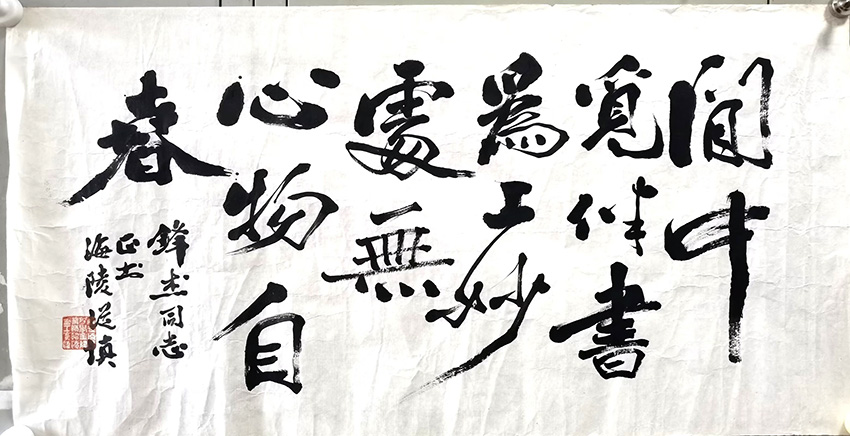 閒中
覓伴書
為工妙
處無
心物自
春
鋒杰同志
正书
海陵從填